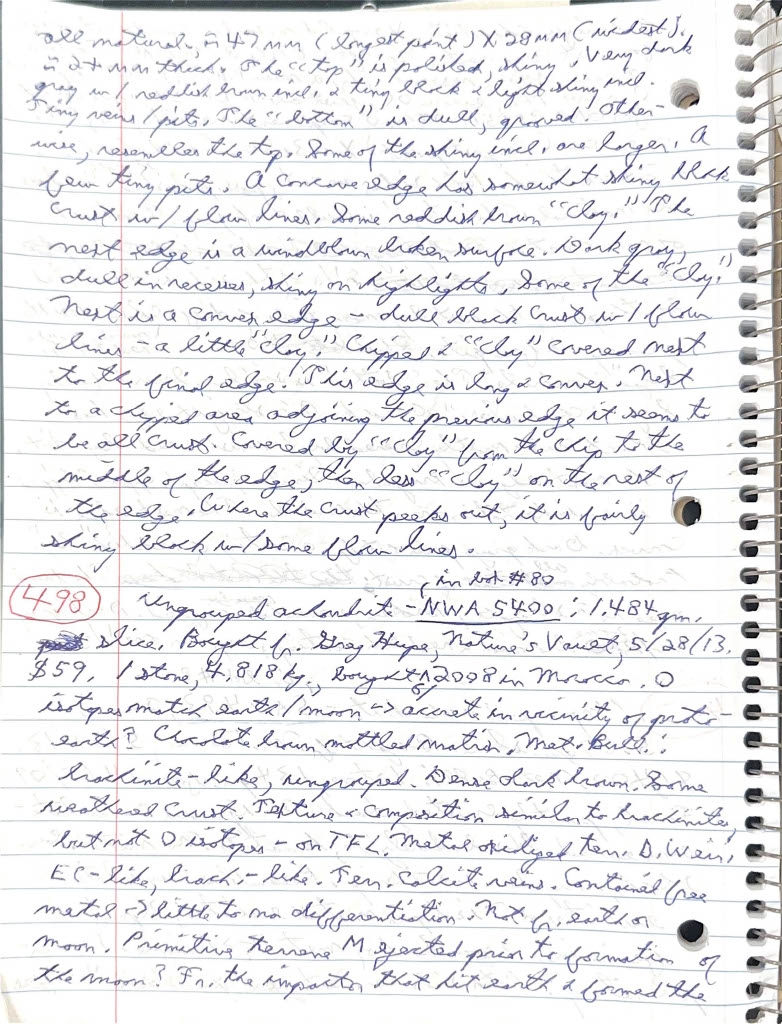 all natural, ≈ 47 mm (longest point) X 28 mm (widest).
≈ 2+ mm thick. The "top" is polished, shiny. Very dark
gray w/ reddish brown incl. & tiny black & light shiny incl.
Tiny veins/pits. The "bottom" is dull, grooved. Other-
wise, resembles the top. Some of the shiny incl. are larger. A
few tiny pits. A concave edge has somewhat shiny black
crust w/ flow lines. Some reddish brown "clay." The
next edge is a windblown broken surface. Dark gray,
dull in recesses, shiny on highlights. Some of the "clay."
Next is a convex edge - dull black crust w/ flow
lines - a little "clay." Chipped & "clay" covered next
to the final edge. This edge is long & convex. Next
to a chipped area adjoining the previous edge it seems to
be all crust. Covered by "clay" from the chip to the
middle of the edge, then less "clay" on the rest of
the edge. Where the crust peeks out, it is fairly
shiny black w/ some flow lines.
in bot #80
498 Ungrouped achondrite - NWA 5400: 1.484 gm.
slice. Bought fr. Greg Hupe, Nature's Vault, 5/28/13.
$59. 1 stone, 4.818 kg., bought 6/2008 in Morocco. O
isotopes match earth/moon -> accrete in vicinity of proto-
earth? Chocolate brown mottled matrix. Met. Bull.:
brachinite-like, ungrouped. Dense dark brown. Some
weathered crust. Texture & composition similar to brachinites,
but not O isotopes - on TFL. Metal oxidized terr. D. Weir:
EC-like, brach.-like. Terr. calcite veins. Contained free
metal -> little to no differentiation. Not fr. earth or
moon. Primitive terrene M ejected prior to formation of
the moon? Fr. the impactor that hit earth & formed the